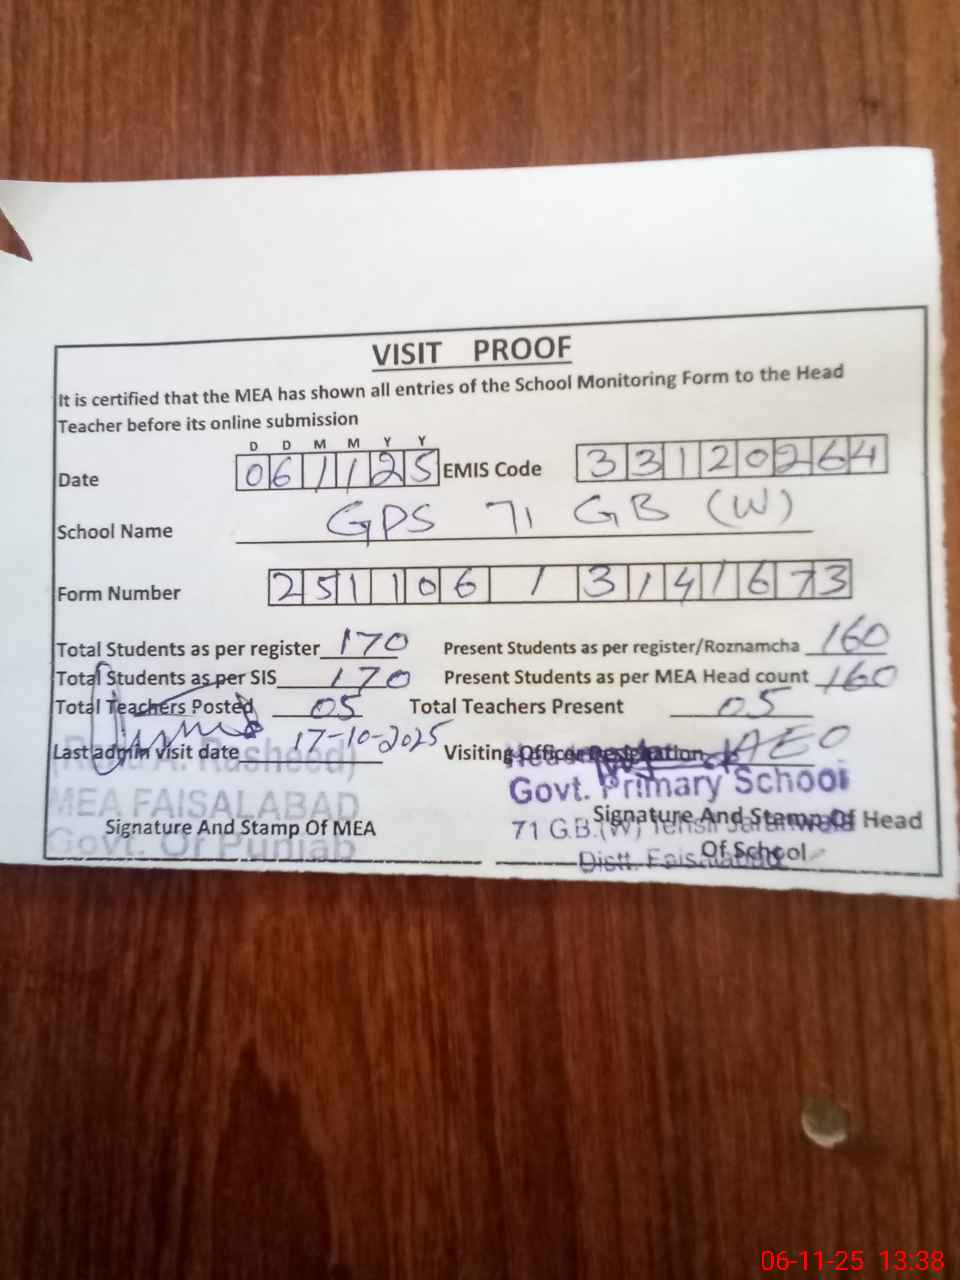 VISIT PROOF
It is certified that the MEA has shown all entries of the School Monitoring Form to the Head
Teacher before its online submission
D D M M Y Y
Date 061125 EMIS Code 33120264
School Name GPS 71 GB (W)
Form Number 251106 / 314/673
Total Students as per register 170 Present Students as per register/Roznamcha 160
Total Students as per SIS 170 Present Students as per MEA Head count 160
Total Teachers Posted 05 Total Teachers Present 05
Last admin visit date 17-10-2025 Visiting Officer Designation AEO
A. Rasheed)
MEA FAISALABAD
Govt. Of Punjab
Signature And Stamp Of MEA
Govt. Primary School
71 G.B.(W) Tehsil Jaranwala
Distt. Faisalabad
Signature And Stamp Of Head
Of School
06-11-25 13:38